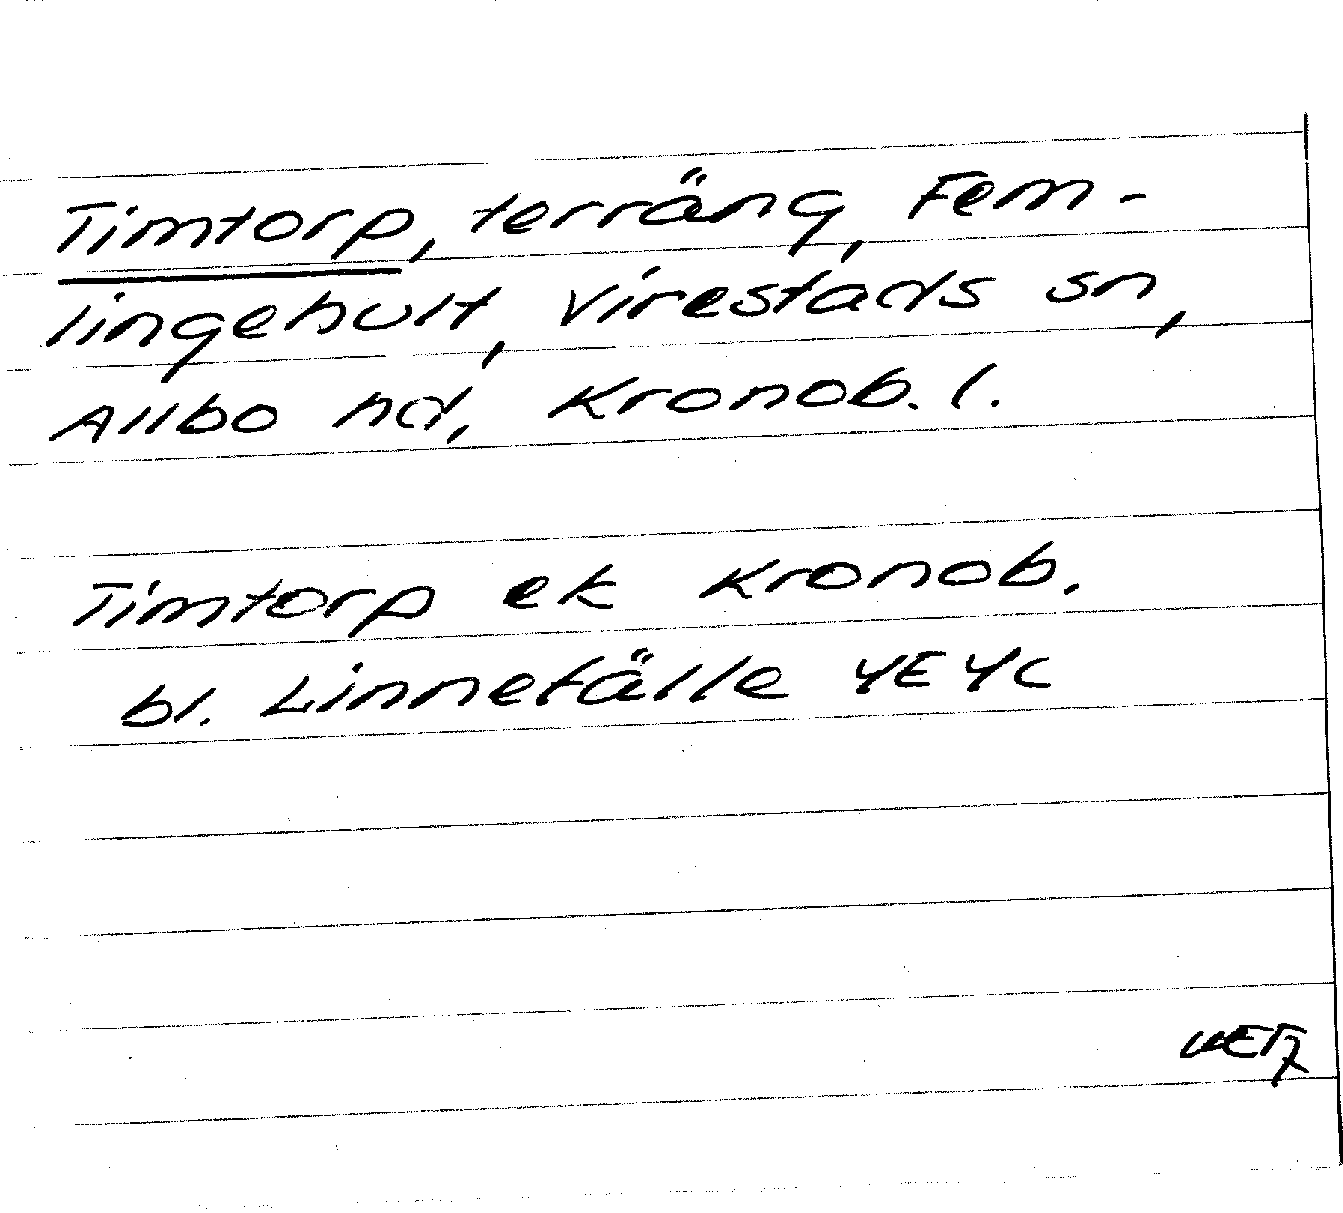 Timtorp, terräng, Fem-
lingehult, Virestads sn,
Allbo hd, Kronob. l.
Timtorp ek Kronob.
bl. Linnefälle 4E4C